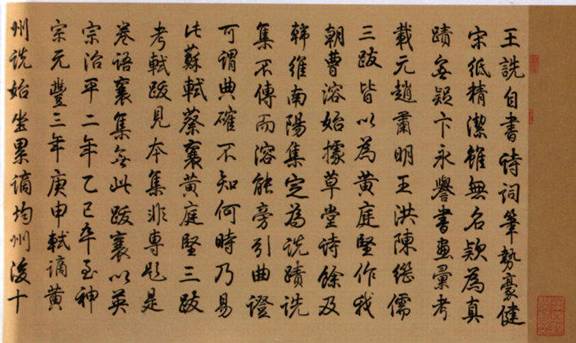 王詵自書詩詞筆勢豪健
宋紙精潔雖無名款為真
蹟無疑卞永譽書畫彙考
載元趙肅明王洪陳繼儒
三跋皆以為黃庭堅作我
朝曹溶始據草堂詩餘及
韓維南陽集定為詵蹟詵
集不傳而溶能旁引曲證
可謂典確不知何時乃易
以蘇軾蔡襄黃庭堅三跋
考軾跋見本集非專題是
卷語襄集無此跋襄以英
宗治平二年乙巳卒至神
宗元豐三年庚申軾謫黃
州詵始坐累謫均州後十